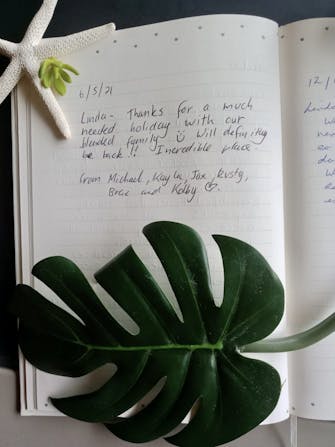 6/5/21
Linda - Thanks for a much
needed holiday with our
blended family ☺ Will definitley
be back!! Incredible place
from Michael, Kayla, Jax,
and Kolby ♡.
12/